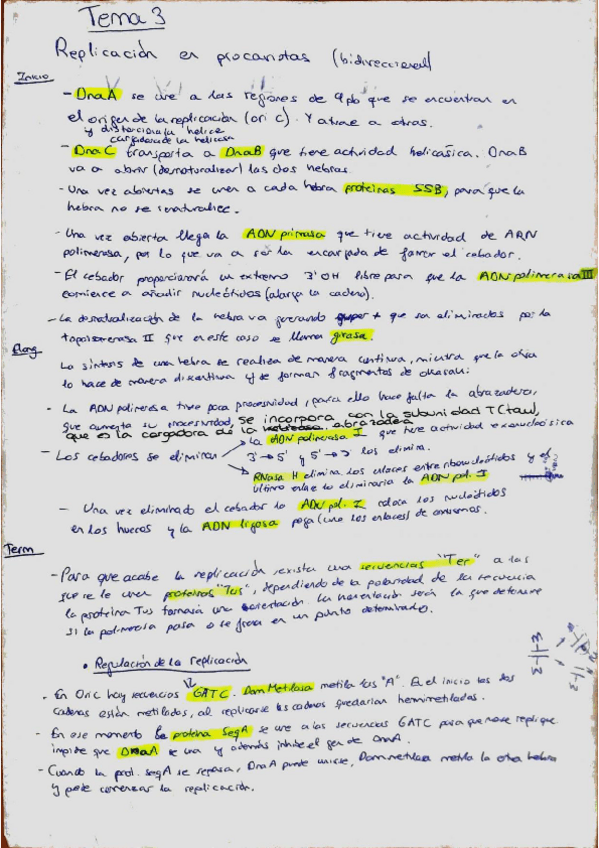 Tema 3
Replicación en procariotas (bidireccional)
Inicio
- DnaA se une a las regiones de 9pb que se encuentran en
el origen de la replicación (ori C). Y atrae a otras.
y distorsiona la hélice
cargadora de la helicasa
- DnaC transporta a DnaB que tiene actividad helicásica. DnaB
va a abrir (desnaturalizar) las dos hebras.
- Una vez abiertas se unen a cada hebra proteínas SSB, para que la
hebra no se renaturalice.
- Una vez abierta llega la ADN primasa que tiene actividad de ARN
polimerasa, por lo que va a ser la encargada de formar el cebador.
- El cebador proporcionará un extremo 3'OH libre para que la ADN polimerasa III
comience a añadir nucleótidos (alarga la cadena).
- La desnaturalización de la hebra va generando + que son eliminados por la
topoisomerasa II que en este caso se llama girasa.
Elong
La síntesis de una hebra se realiza de manera continua, mientra que la otra
lo hace de manera discontinua y se forman fragmentos de okasaki.
- La ADN polimerasa tiene poca procesividad, para ello hace falta la abrazadera,
que aumenta su procesividad, se incorpora con la subunidad T(tau),
que es la cargadora de la abrazadera
- Los cebadores se eliminan
la ADN polimerasa I que tiene actividad exonucleásica
3'→5' y 5'→3' los elimina.
RNasa H elimina los enlaces entre ribonucleótidos y el
último enlace lo eliminaría la ADN pol. I
- Una vez eliminado el cebador la ADN pol. I coloca los nucleótidos
en los huecos y la ADN ligasa pega (une los enlaces) de
Term
- Para que acabe la replicación existen una secuencias "Ter" a las
que se le unen proteínas "Tus", dependiendo de la polaridad de la secuencia
la proteína Tus tomaría una orientación. La orientación será la que determine
si la polimerasa pasa o se frena en un punto determinado.
• Regulación de la replicación
- En OriC hay secuencias GATC. Dam Metilasa metila las "A". En el inicio las dos
cadenas están metiladas, al replicarse las cadenas quedarían hemimetiladas.
- En ese momento la proteína SeqA se une a las secuencias GATC para que no se replique
impide que DnaA se una y además inhibe el gen de DnaA.
- Cuando la prot. seqA se separa, DnaA puede unirse, Dam metilasa metila la otra hebra
y puede comenzar la replicación.